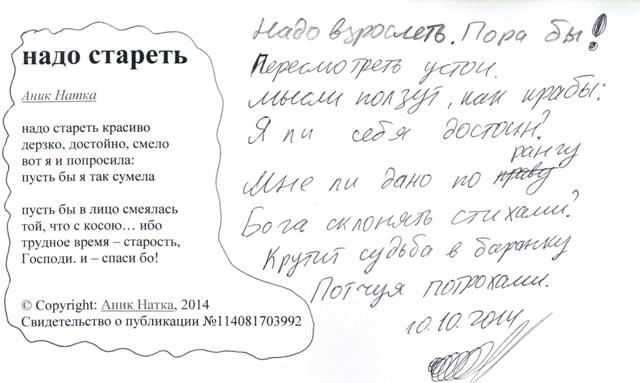 надо стареть
Аник Натка
надо стареть красиво
дерзко, достойно, смело
вот я и попросила:
пусть бы я так сумела
пусть бы в лицо смеялась
той, что с косою... ибо
трудное время – старость,
Господи. и – спаси бо!
© Copyright: Аник Натка, 2014
Свидетельство о публикации №114081703992
Надо взрослеть. Пора бы!
Пересмотреть устои.
Мысли ползут, как крабы:
Я ли себя достоин?
рангу
Мне ли дано по праву
Бога склонять стихами?
Крутит судьба в баранку
Потчуя потрохами.
10.10.2014